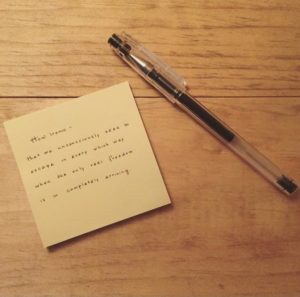 How ironic -
that we unconsciously seek to
escape in every which way
when the only real freedom
is in completely arriving